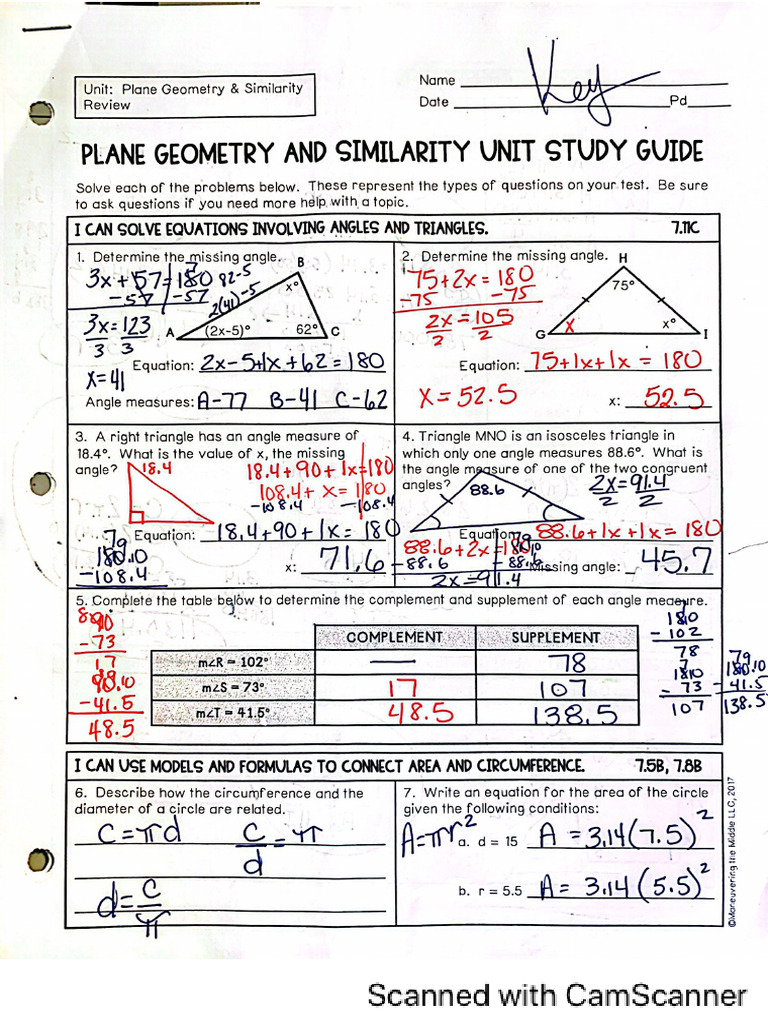 Unit: Plane Geometry & Similarity
Review
Name Key
Date Pd
PLANE GEOMETRY AND SIMILARITY UNIT STUDY GUIDE
Solve each of the problems below. These represent the types of questions on your test. Be sure
to ask questions if you need more help with a topic.
I CAN SOLVE EQUATIONS INVOLVING ANGLES AND TRIANGLES. 7.11C
1. Determine the missing angle.
3x + 57 = 180
-57 -57
3x = 123
3 3
x = 41
82-5
2(41)-5
B
x°
A
(2x-5)°
62°
C
Equation: 2x-5+1x+62=180
Angle measures: A-77 B-41 C-62
2. Determine the missing angle.
75+2x = 180
-75 -75
2x = 105
2 2
H
75°
G
x
x°
I
Equation: 75+1x+1x = 180
X = 52.5
x: 52.5
3. A right triangle has an angle measure of
18.4°. What is the value of x, the missing
angle?
18.4
18.4+90+1x=180
108.4+ x = 180
-108.4 -108.4
Equation: 18.4+90+1x = 180
79
180.10
-108.4
x: 71.6
4. Triangle MNO is an isosceles triangle in
which only one angle measures 88.6°. What is
the angle measure of one of the two congruent
angles?
88.6
2x=91.4
2 2
Equation: 88.6+1x+1x=180
88.6+2x=180.10
-88.6 -88.6
2x=91.4
Missing angle: 45.7
5. Complete the table below to determine the complement and supplement of each angle measure.
COMPLEMENT SUPPLEMENT
m∠R = 102° — 78
m∠S = 73° 17 107
m∠T = 41.5° 48.5 138.5
90
-73
17
90.10
-41.5
48.5
1810
-102
78
1810
-73
107
79
180.10
-41.5
138.5
I CAN USE MODELS AND FORMULAS TO CONNECT AREA AND CIRCUMFERENCE. 7.5B, 7.8B
6. Describe how the circumference and the
diameter of a circle are related.
C=πd C/d=π
d=C/π
7. Write an equation for the area of the circle
given the following conditions:
A=πr²
a. d = 15 A = 3.14(7.5)²
b. r = 5.5 A = 3.14(5.5)²
©Maneuvering the Middle LLC, 2017
Scanned with CamScanner